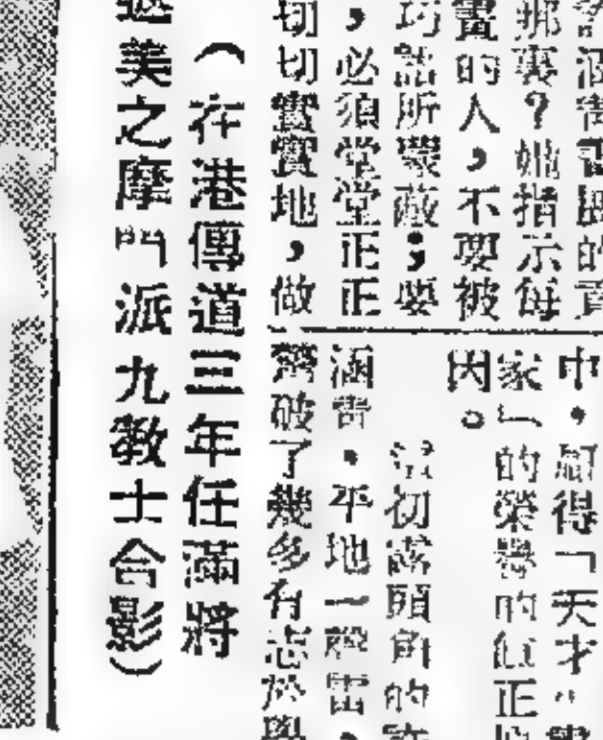 的
那裏？她指示每
畫的人，不要被
巧話所蒙蔽；要
，必須堂堂正正
切切實實地，做
中，顧得「天才」
家」的榮譽的
因。
初露頭角的許
涵青，平地一聲雷，
驚破了幾多有志於
（在港傳道三年任滿將
返美之摩門派九教士合影）